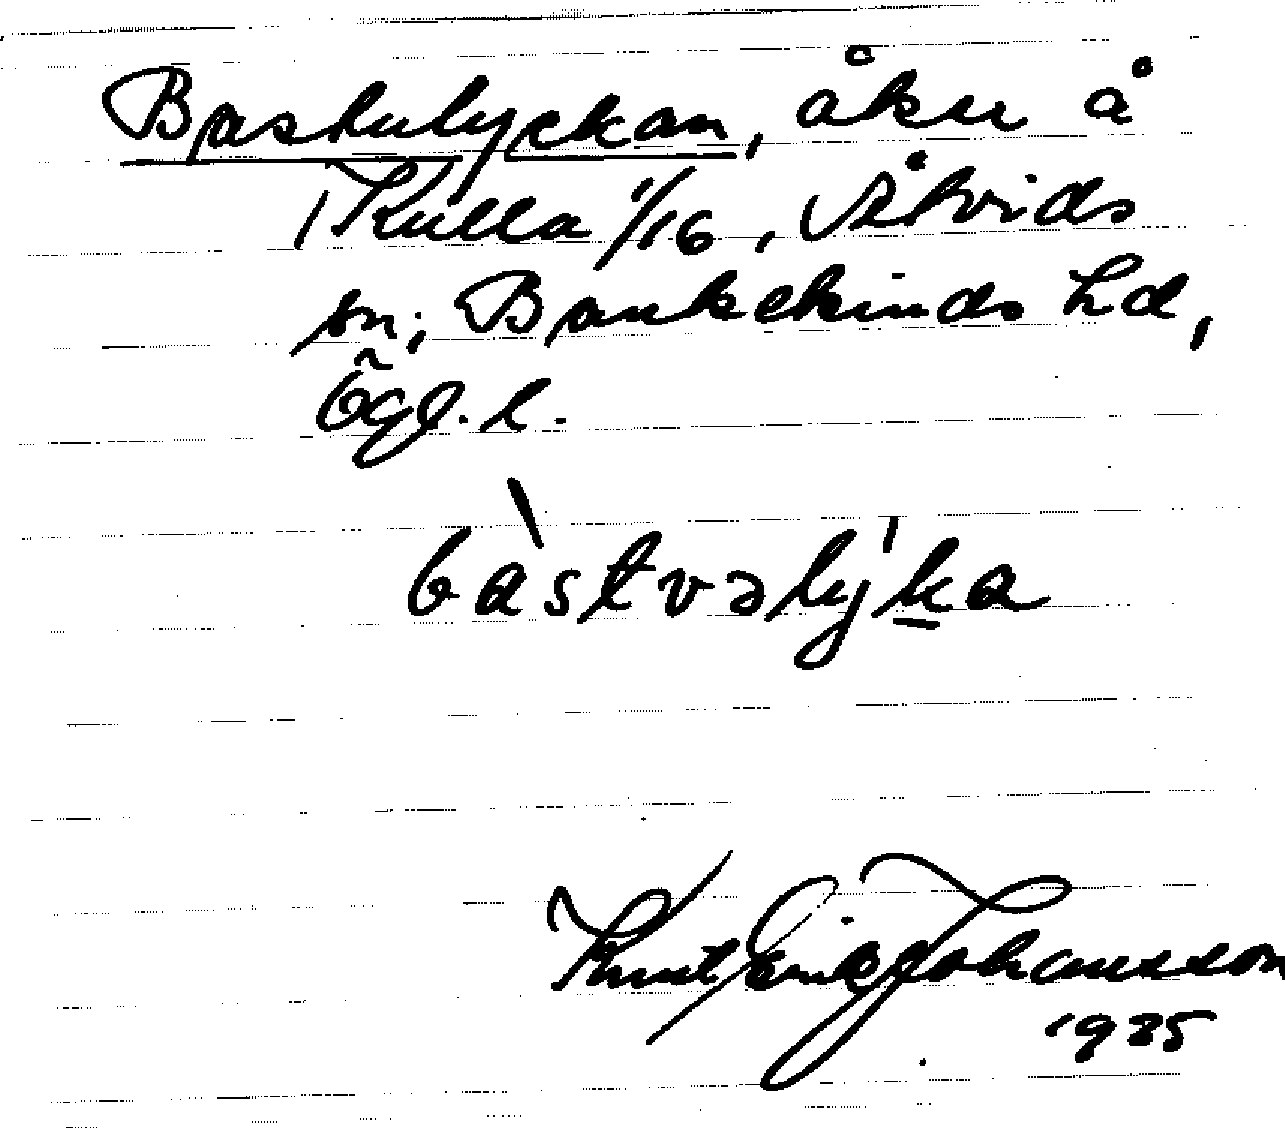 Bastulyckan, åker å
Kulla 1/16, Åtvids
sn; Bankekinds hd,
Ögl. l.
bàstvəlýka
Knut Erik Johansson
1935